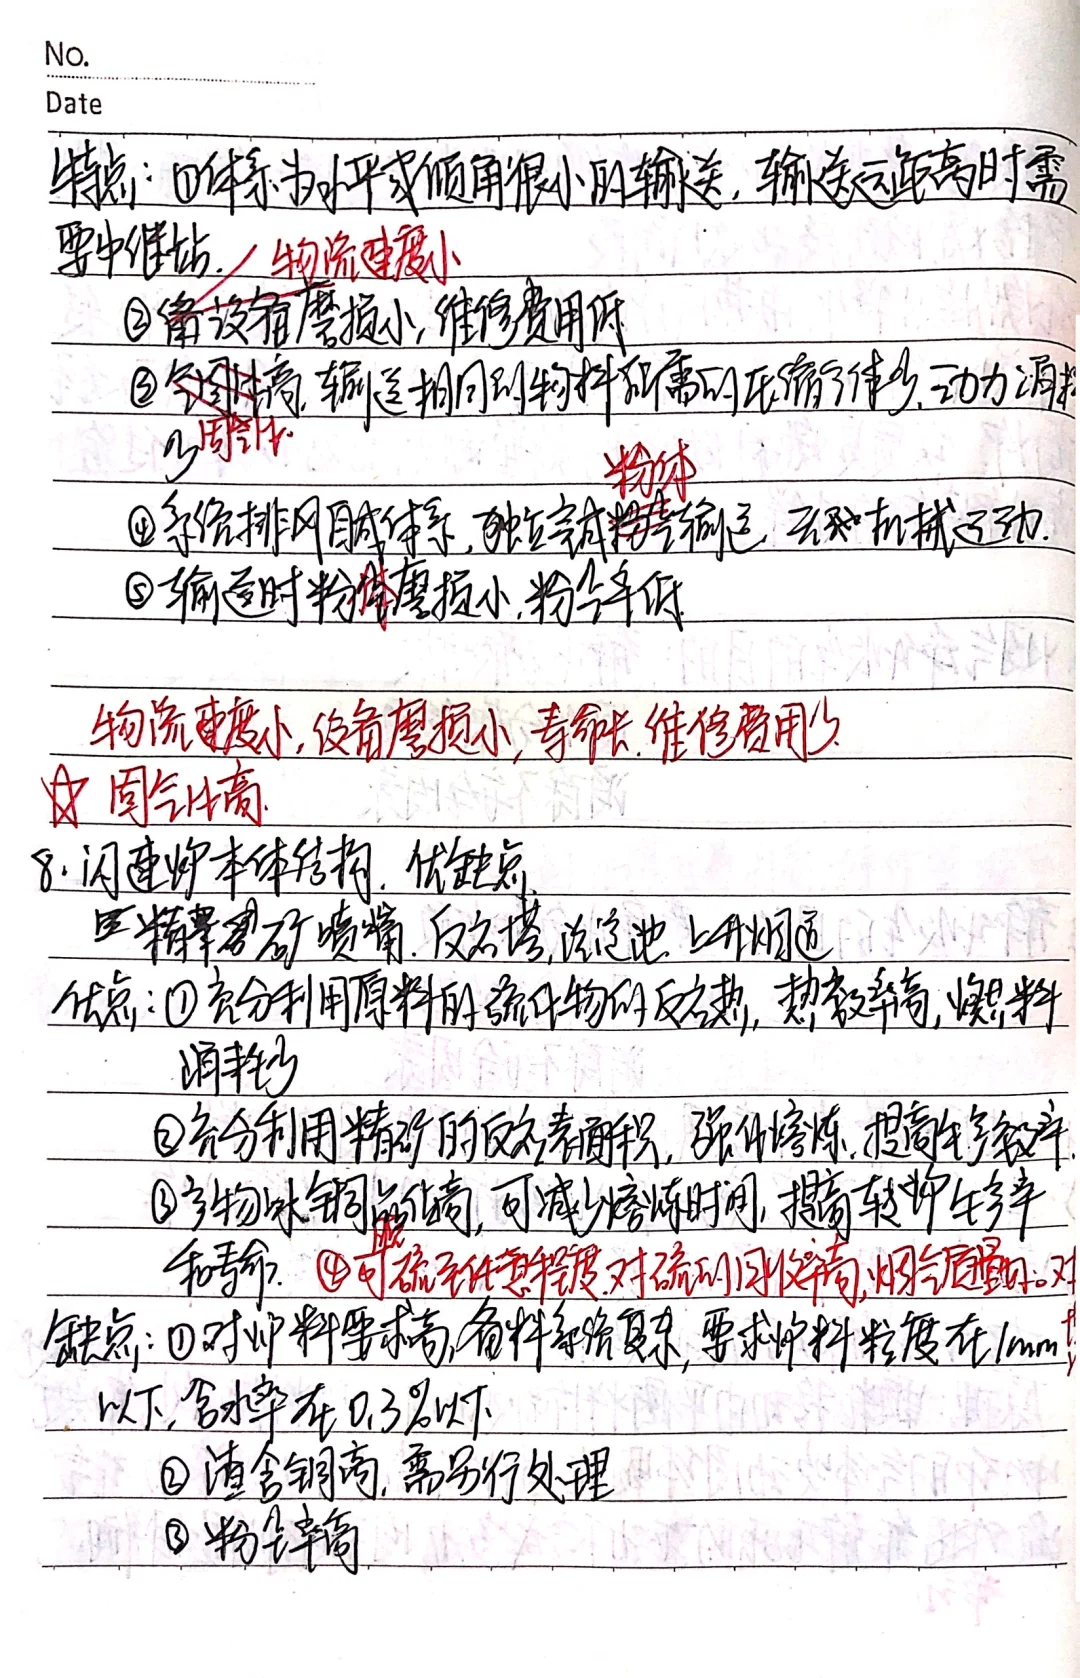 No.
Date
特点：①体系为水平或倾角很小的输送，输送高时需
要中继站. 物流速度小
②设备磨损小，维修费用低
③高，输送相同的物料所需的压缩气体少、动力消耗
少 固气比.
粉体
④系统排风自成体系，独立完成输送 无机械运动.
⑤输送时粉体磨损小，粉尘率低.
物流速度小，设备磨损小，寿命长.维修费用少.
☆ 固气比高.
8. 闪速炉本体结构、优缺点.
精矿喷嘴. 反应塔，沉淀池. 上升烟道
优点：①充分利用原料的硫化物的反应热，热效率高，燃料
消耗少
②充分利用精矿的反应表面积，强化熔炼，提高生产效率.
③产物冰铜品位高，可减少熔炼时间，提高转炉生产率
和寿命. ④可脱硫至任意程度.对硫的回收率高，烟气质量好。对
缺点：①对炉料要求高，备料系统复杂，要求炉料粒度在1mm
以下，含水率在0.3%以下.
②渣含铜高，需另行处理
③粉尘率高